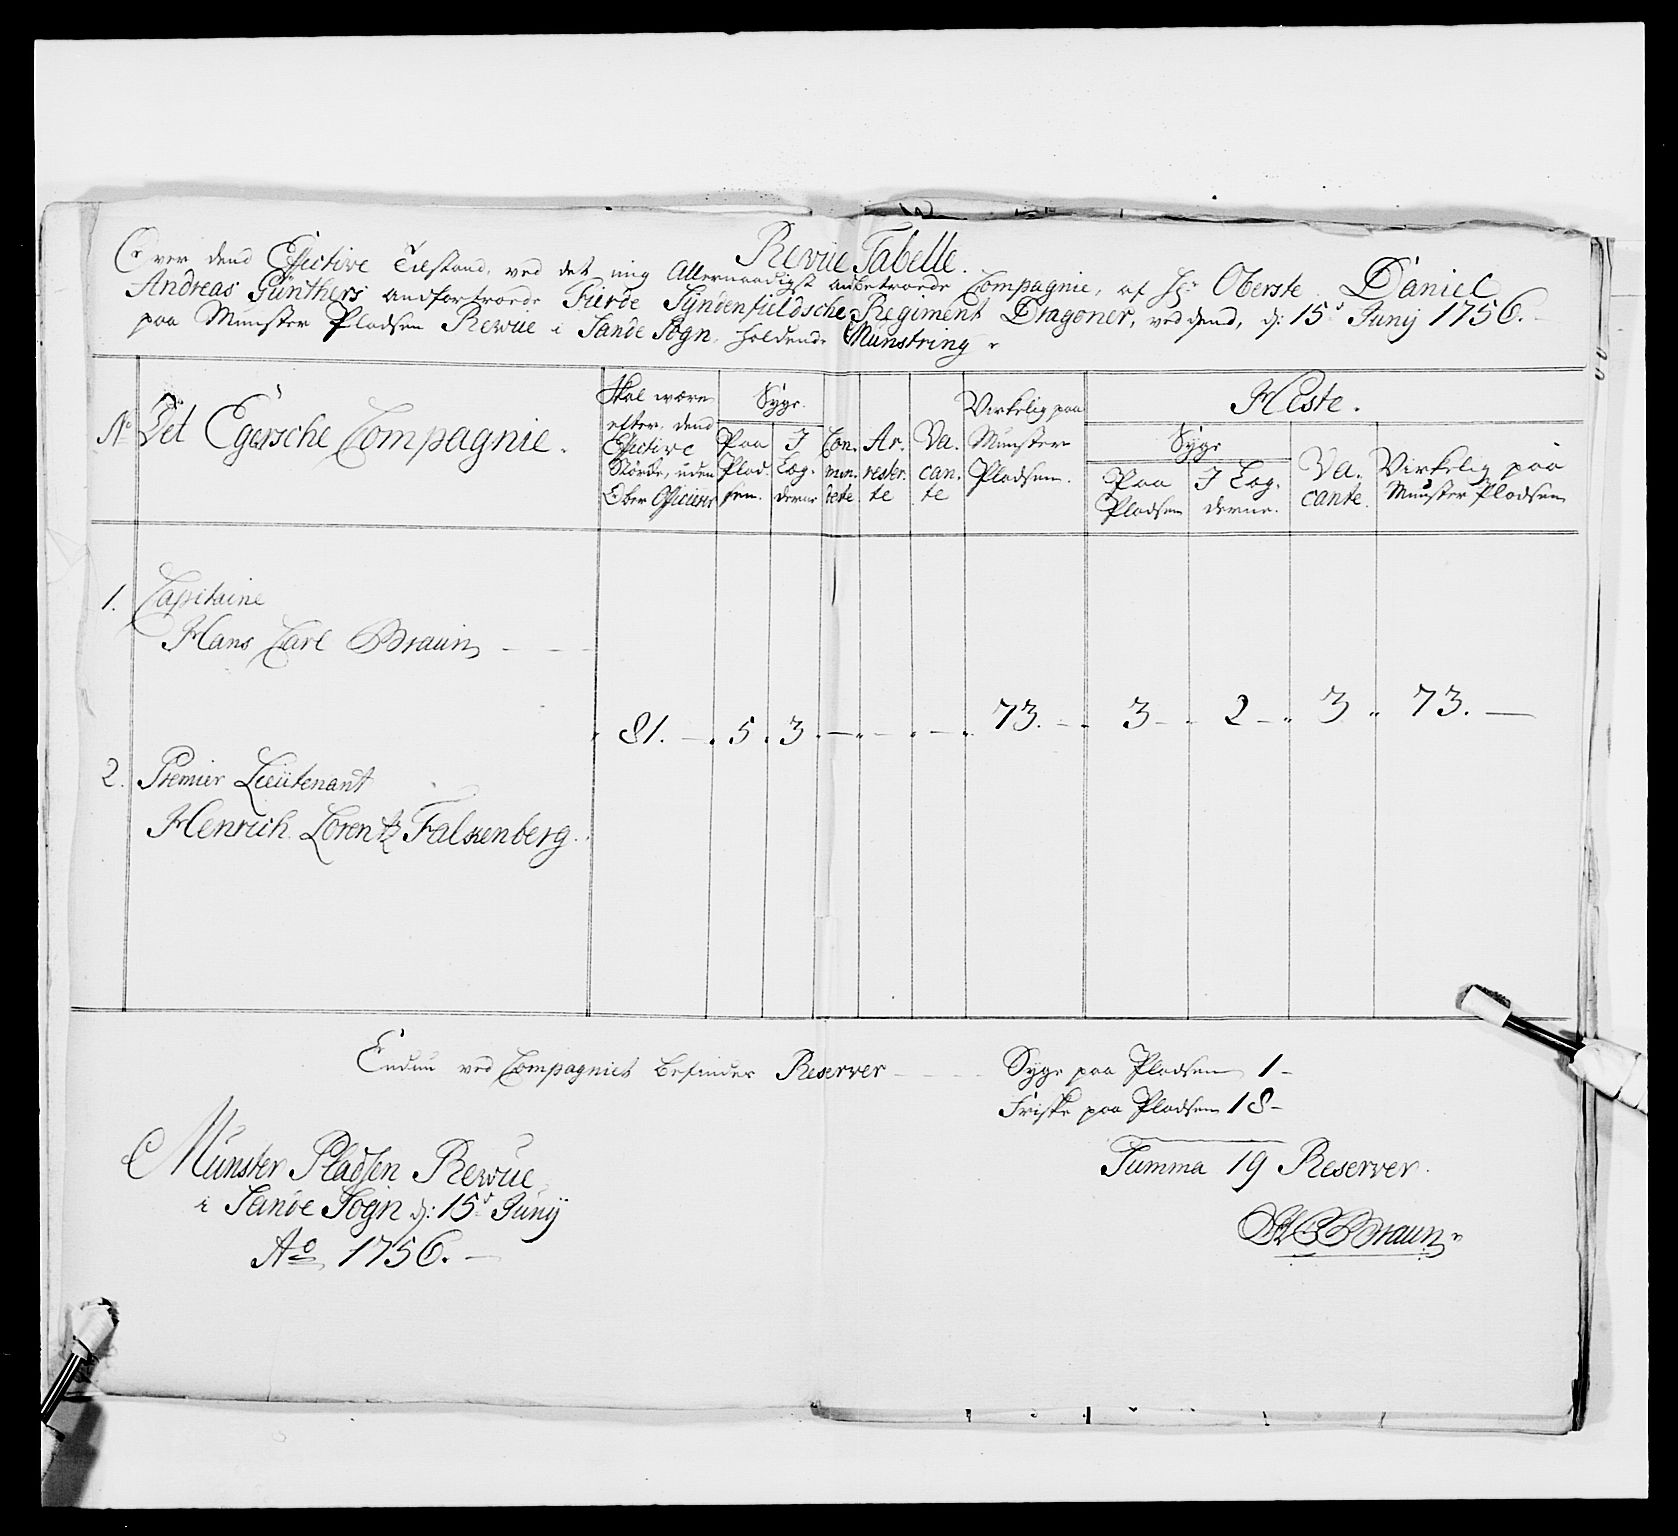 Revüe Tabelle.
Over dend Effective Tilstand, ved det mig Allernaadigst anbetroede Compagnie, af Hr Oberste Daniel
Andreas Günthers andfortroede Fierde Syndenfieldsche Regiment Dragoner, ved dend, d: 15d Junij 1756.
paa Munster Pladsen Rewue i Sande Sogn, holdende Münstring
No Det Egersche Compagnie.
Skal være efter dend Effective Storke, uden Ober Officiers
Syge.
Paa Plad- sen.
I Lag- derne
Com- man- derte
Ar- rester- te
Va- can- te
Virkelig paa Munster Pladsen.
Heste.
Syge
Paa Pladsen
I Lag- derne.
Va- cante.
Virkelig paa Munster Pladsen
1. Capitaine
Hans Carl Braun
81. 5. 3. 73. 3 2 3 73.
2. Premier Lieütenant
Henrich Lorentz Falkenberg.
Endnu ved Compagniet befinder Reserver
Syge paa Pladsen 1
Friske paa Pladsen 18
Summa 19 Reserver.
Munster Pladsen Rewue
i Sande Sogn d: 15d Junij
Ao 1756.
HCBraun